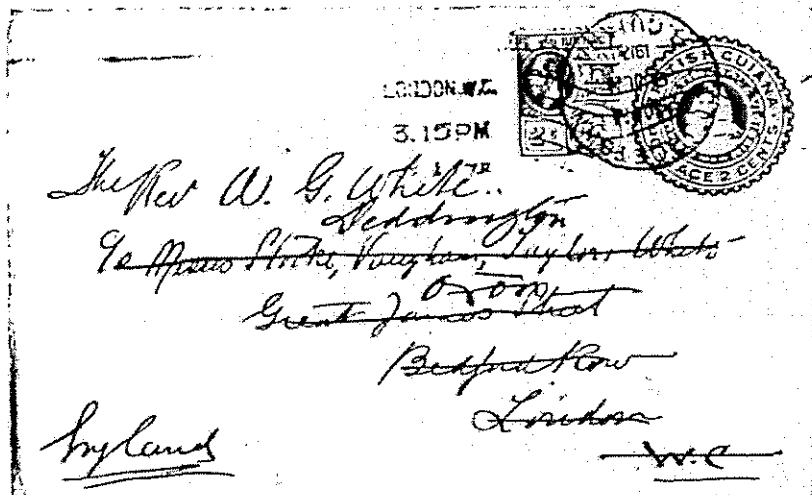 BRITISH GUIANA
POSTAGE 2 CENTS
LONDON. W.C.
3.15 PM
The Rev W. G. White
Deddington
c/o Messrs Stocke, Vaughan, Taylor, White
Oxon
Great James Street
Bedford Row
London
W.C
England